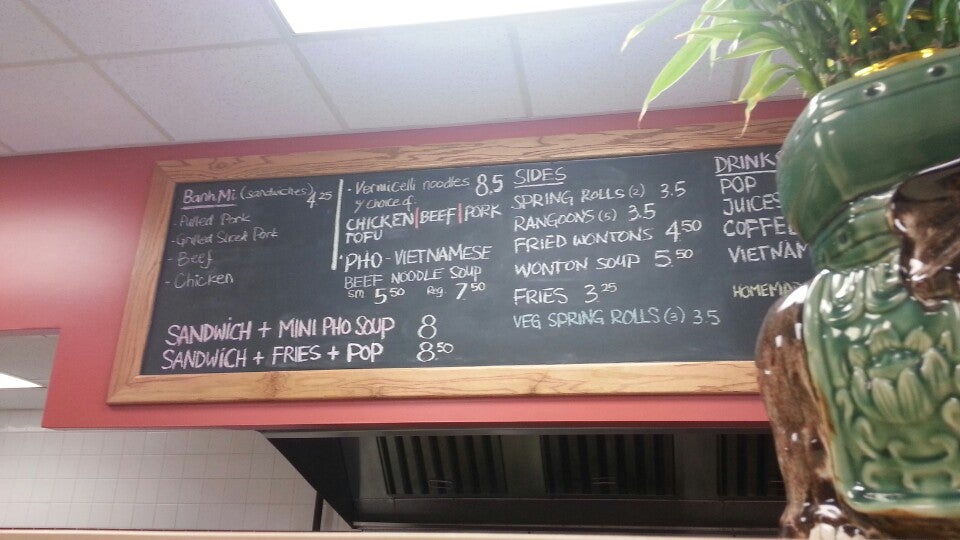 Banh Mi (sandwiches) 4.25
- Pulled Pork
- Grilled Sliced Pork
- Beef
- Chicken
SANDWICH + MINI PHO SOUP 8
SANDWICH + FRIES + POP 8.50
· Vermicelli noodles 8.5
y choice of
CHICKEN | BEEF | PORK
TOFU
· PHO - VIETNAMESE
BEEF NOODLE SOUP
sm 5.50 Reg. 7.50
SIDES
SPRING ROLLS (2) 3.5
RANGOONS (5) 3.5
FRIED WONTONS 4.50
WONTON SOUP 5.50
FRIES 3.25
VEG SPRING ROLLS (3) 3.5
DRINK
POP
JUICES
COFFEE
VIETNAM
HOMEMA